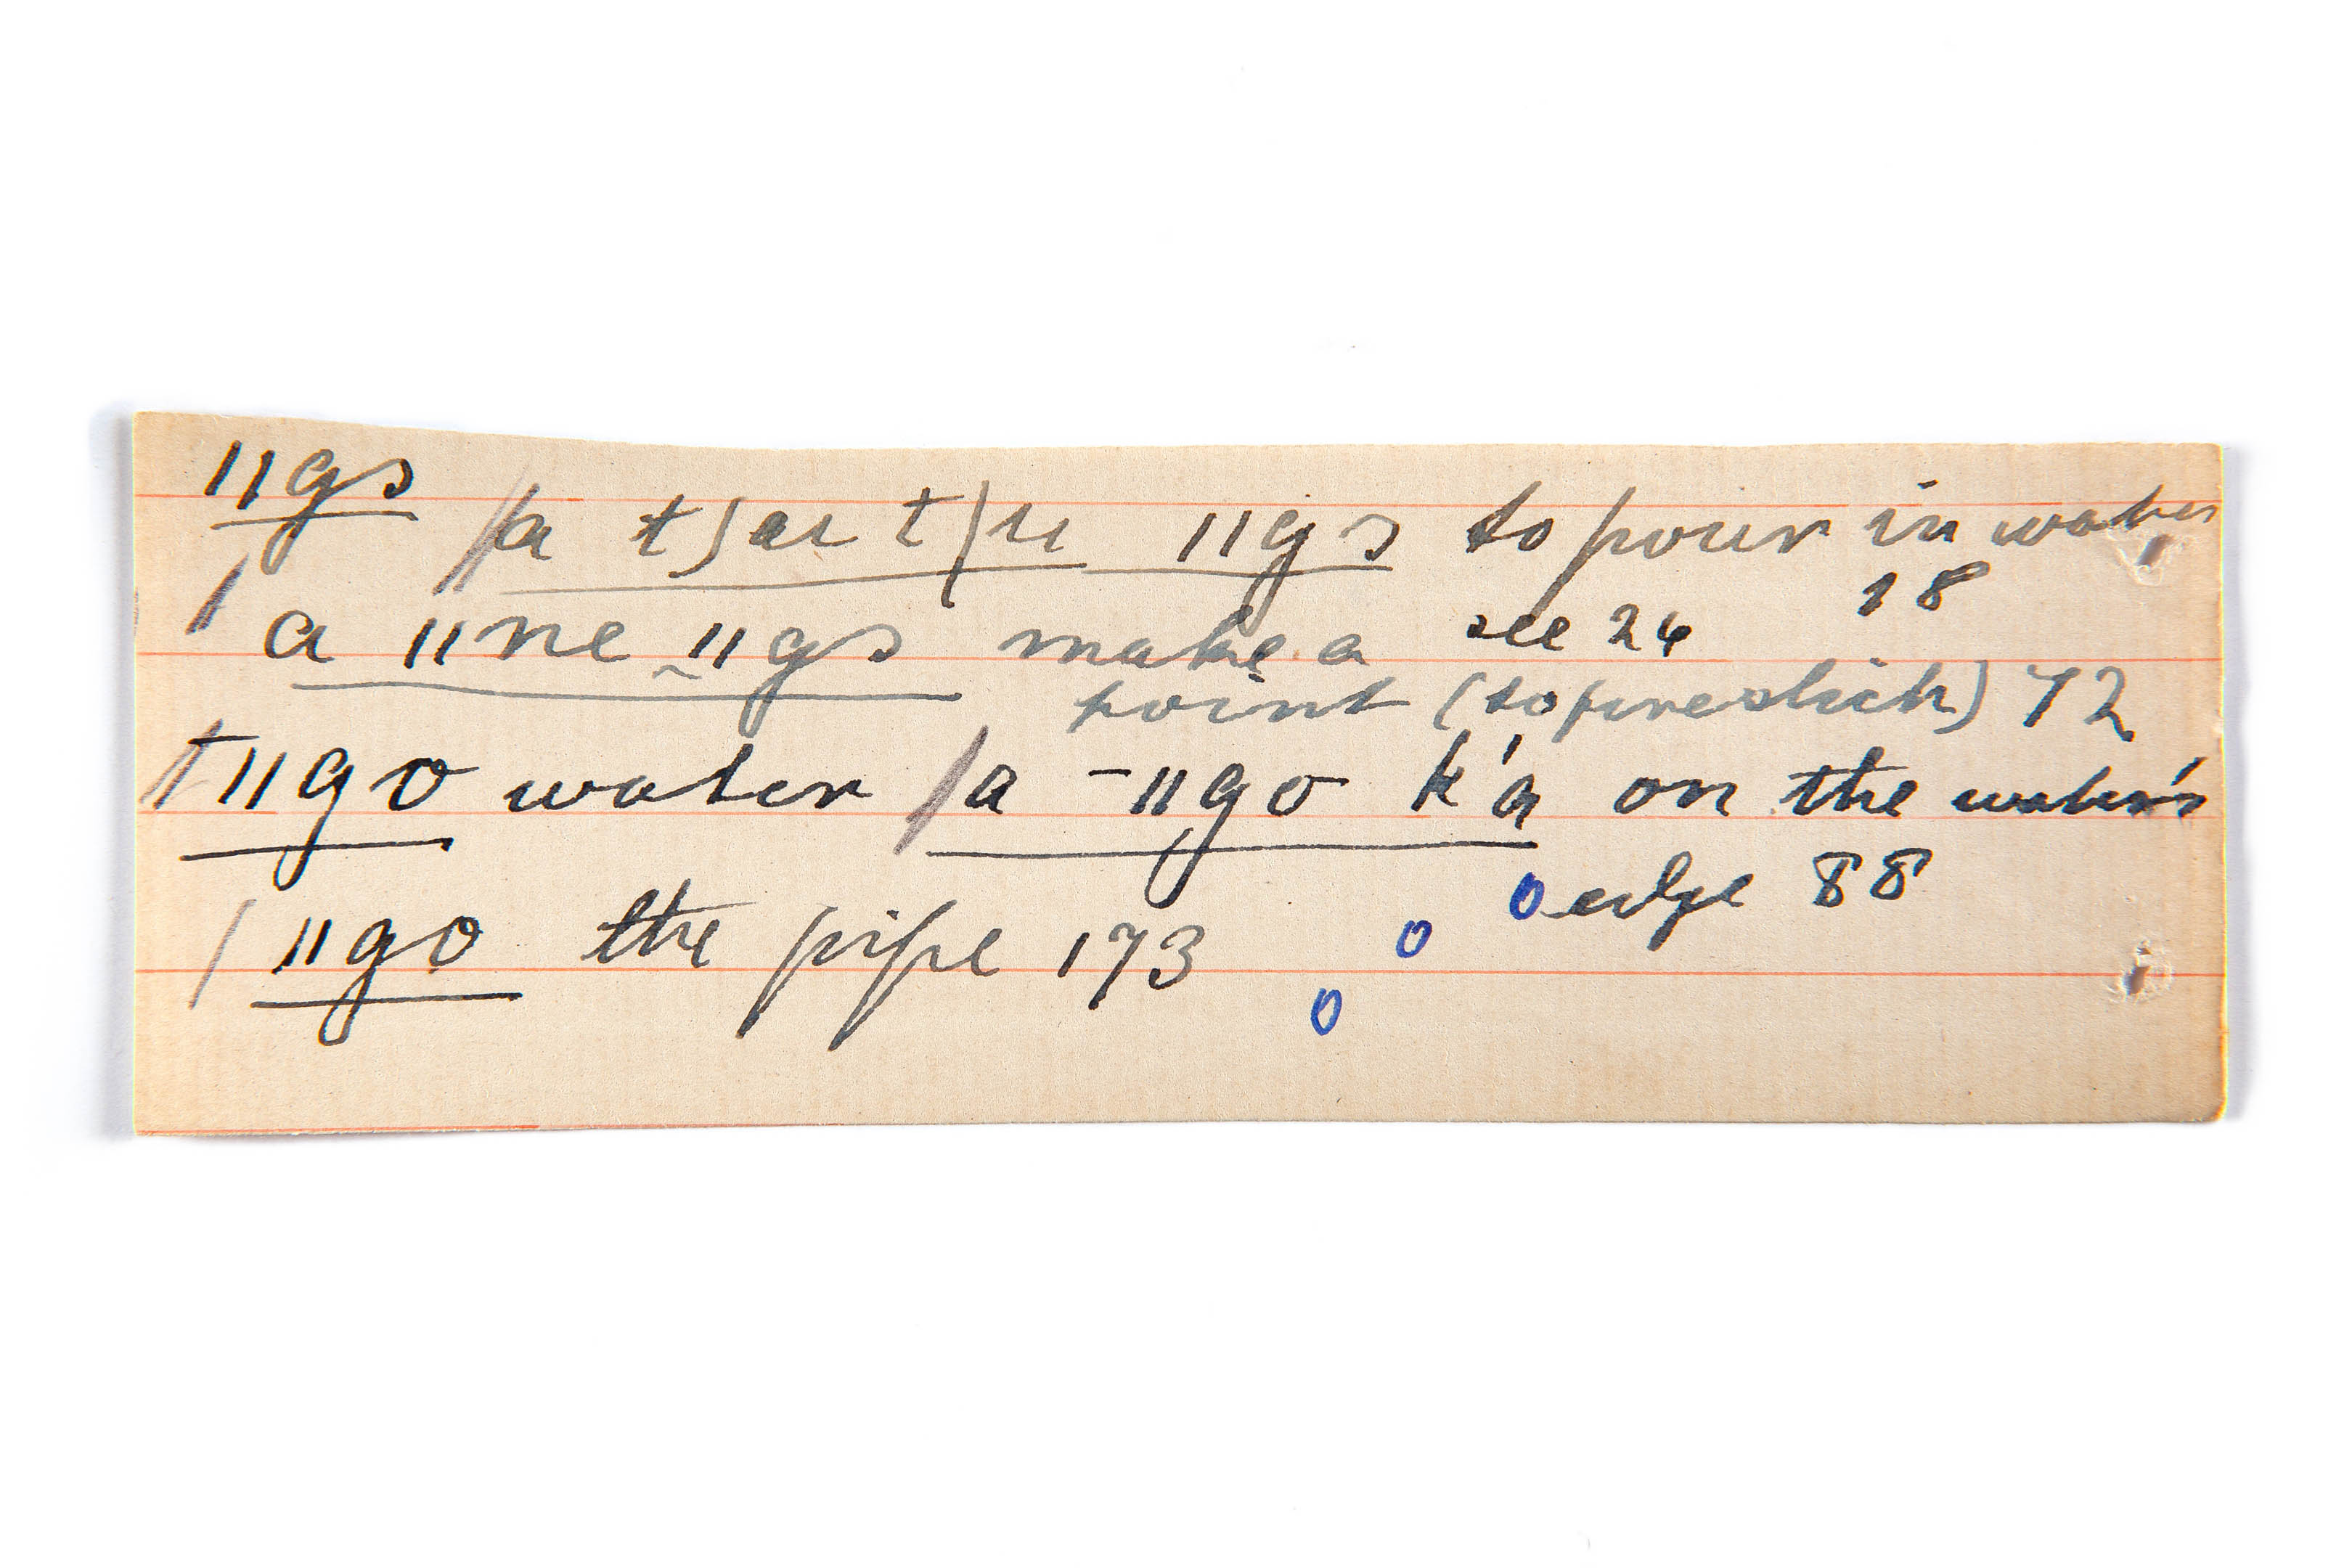 ǁgɔ
a tʃau tʃu ǁgɔ to pour in water
18
a ǁne ǁgɔ make a see 26
point (to firestick) 72
ǁgo water a -ǁgo k'ą on the water's
edge 88
ǁgo the pipe 173